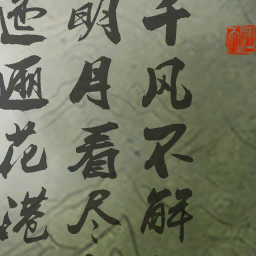 千风不解
明月看尽
迤逦花港